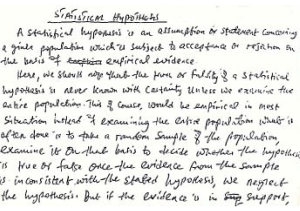 STATISTICAL HYPOTHESIS
A statistical hypothesis is an assumption or statement concerning
a given population which is subject to acceptance or rejection on
the basis of empirical evidence.
Here, we should note that the true or falsity of a statistical
hypothesis is never known with certainty unless we examine the
entire population. This of course, would be empirical in most
situation instead of examining the entire population what is
often done is to take a random sample of the population,
examine it on that basis to decide whether the hypothesis
is true or false once the evidence from the sample
is inconsistent with the stated hypothesis, we reject
the hypothesis. But if the evidence is in support,